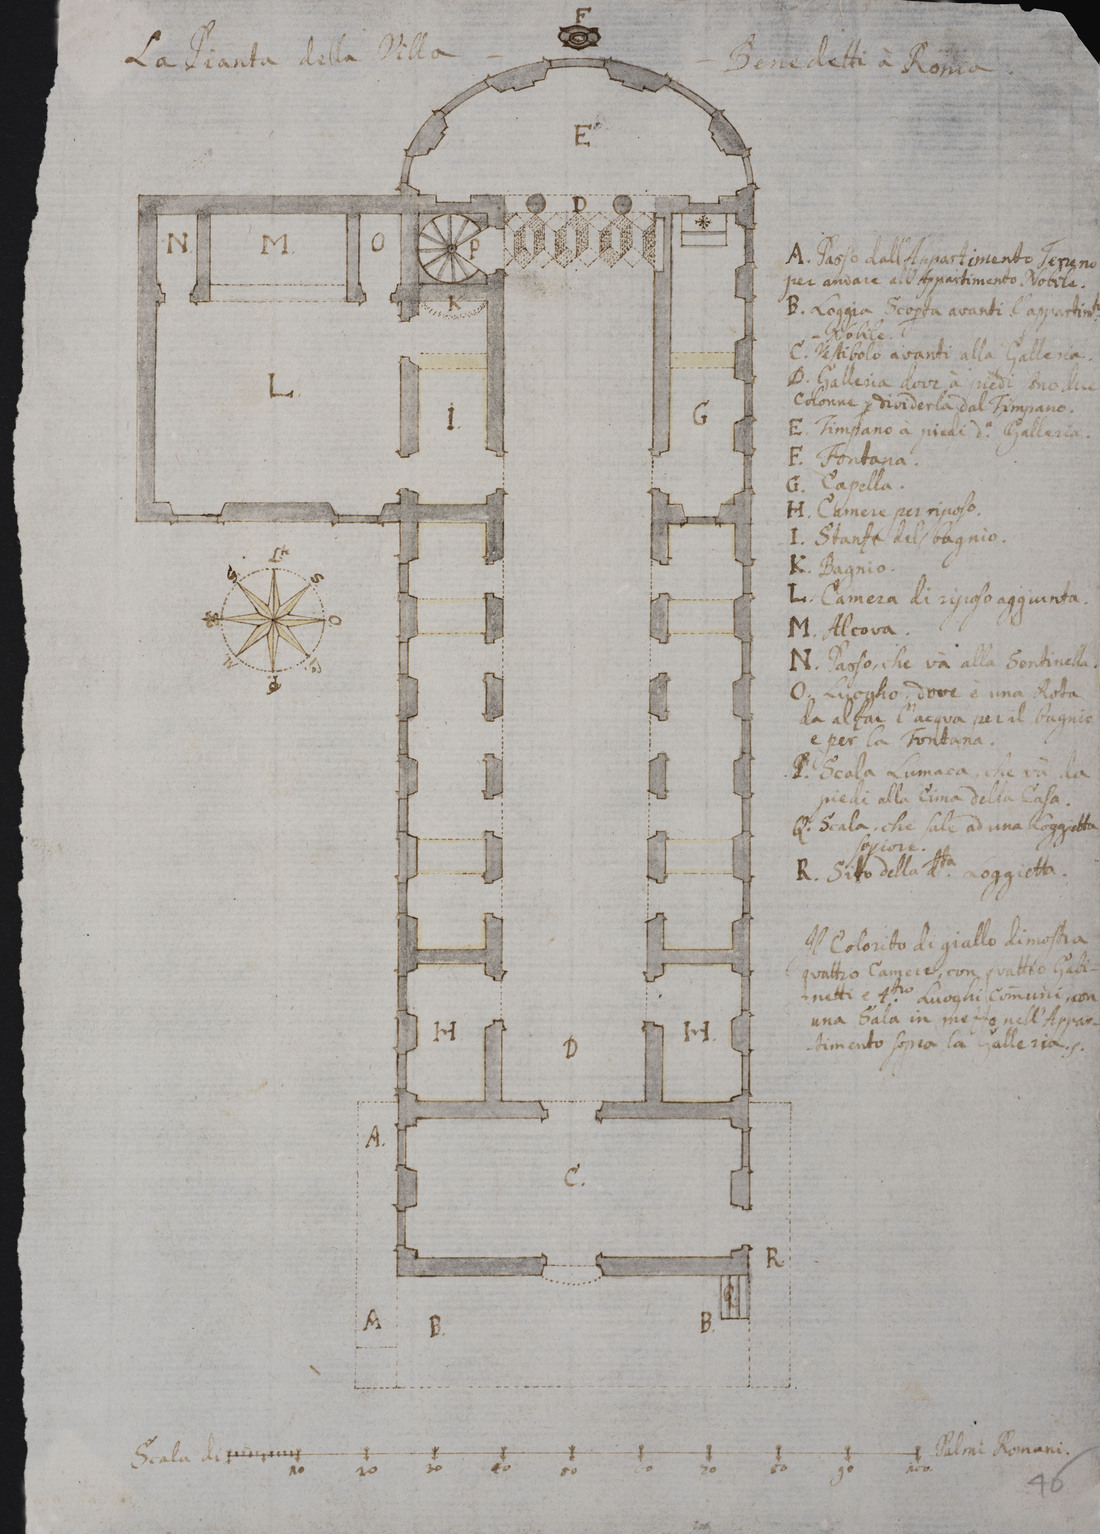 La Pianta della Villa – – Benedetti à Roma.
F
E
D
N
M
O
P
*
K
L.
I.
G
H
H.
D
A.
C.
R
Q
A
B.
B.
S
O
A. Passo dall'Appartimento Terreno
per andare all'Appartimento Nobile.
B. Loggia Scopta avanti l'appartimto
– Nobile.
C. Vestibolo avanti alla Galleria.
D. Galleria dove à piedi sono due
Colonne p dividerla dal Timpano.
E. Timpano à piedi da. Galleria.
F. Fontana.
G. Capella.
H. Camere per riposo.
I. Stanze del bagnio.
K. Bagnio.
L. Camera di riposo aggiunta.
M. Alcova.
N. Passo, che và alla Sentinella.
O. Luogho, dove è una Rota
da alzar l'acqua per il bagnio
e per la Fontana.
P. Scala Lumaca, che và da
piedi alla Cima della Casa.
Q. Scala, che sale ad una loggietta
R. Sito della dta. Loggietta.
Il Colorito di giallo dimostra
quattro Camere, con quattro Gabi-
netti e 4tro Luoghi Comuni, con
una Sala in mezzo nell'Appar-
timento sopra la Galleria.
Scala di Palmi Romani.
10 20 30 40 50 60 70 80 90 100
46